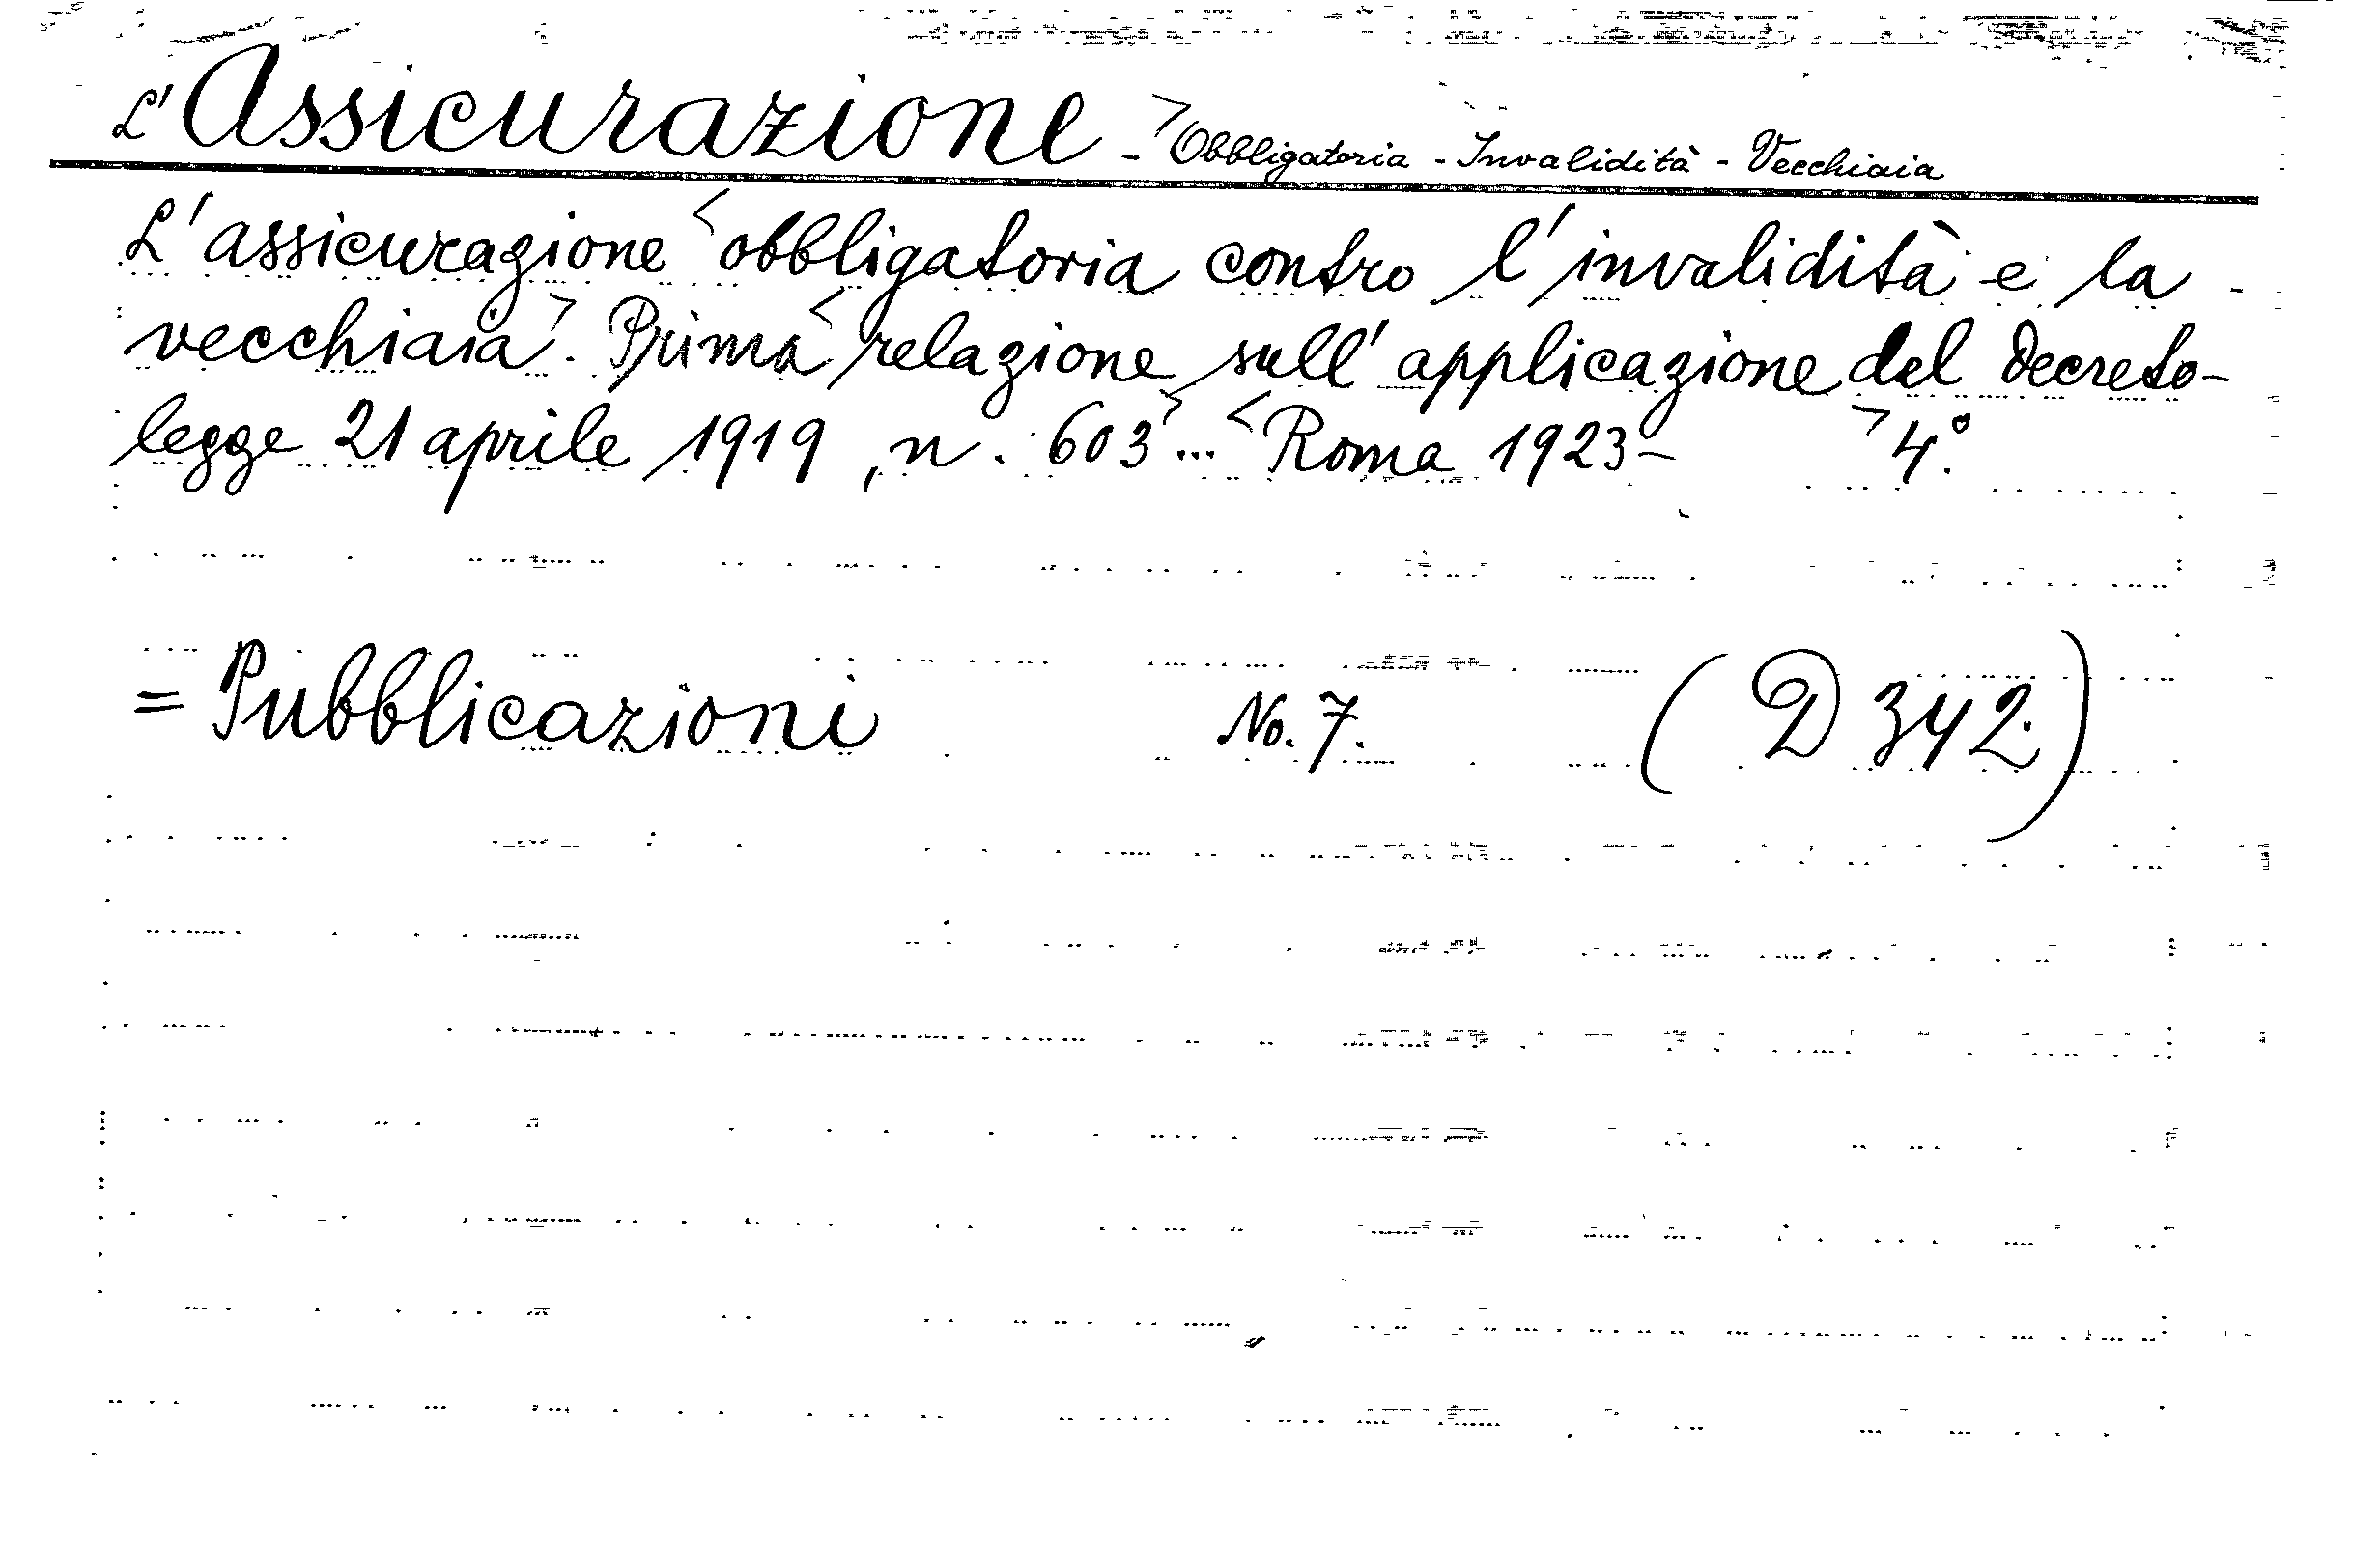 L'Assicurazione - > Obbligatoria - Invalidità - Vecchiaia
L'assicurazione < obbligatoria contro l'invalidità e la
vecchiaia >. Prima < relazione sull'applicazione del decreto-
legge 21 aprile 1919, n. 603 > ... < Roma 1923 - > 4.º
= Pubblicazioni No. 7. (D 342.)